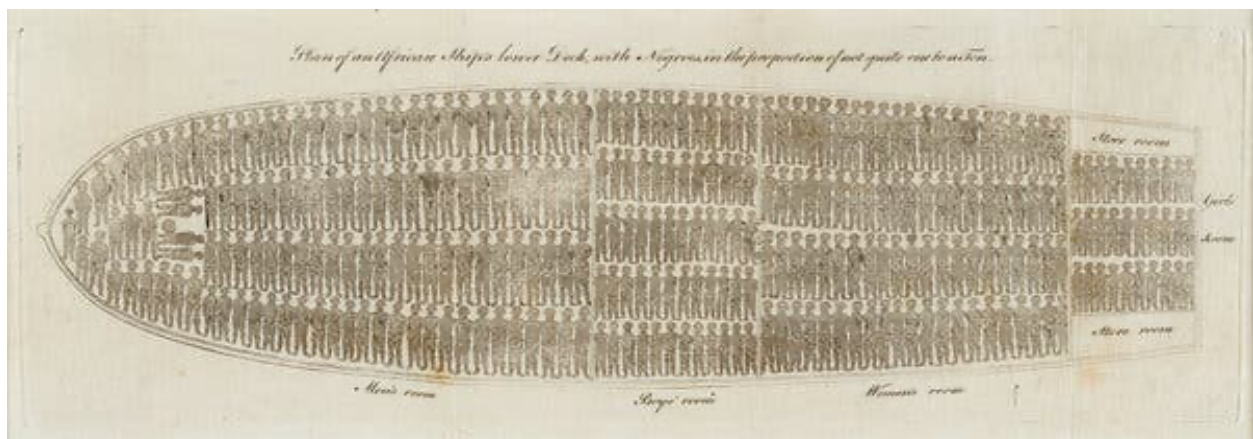 Plan of an African Ship's lower Deck, with Negroes, in the proportion of not quite one to a Ton.
Store room
Girls
Room
Store room
Men's room
Boys' room
Women's room